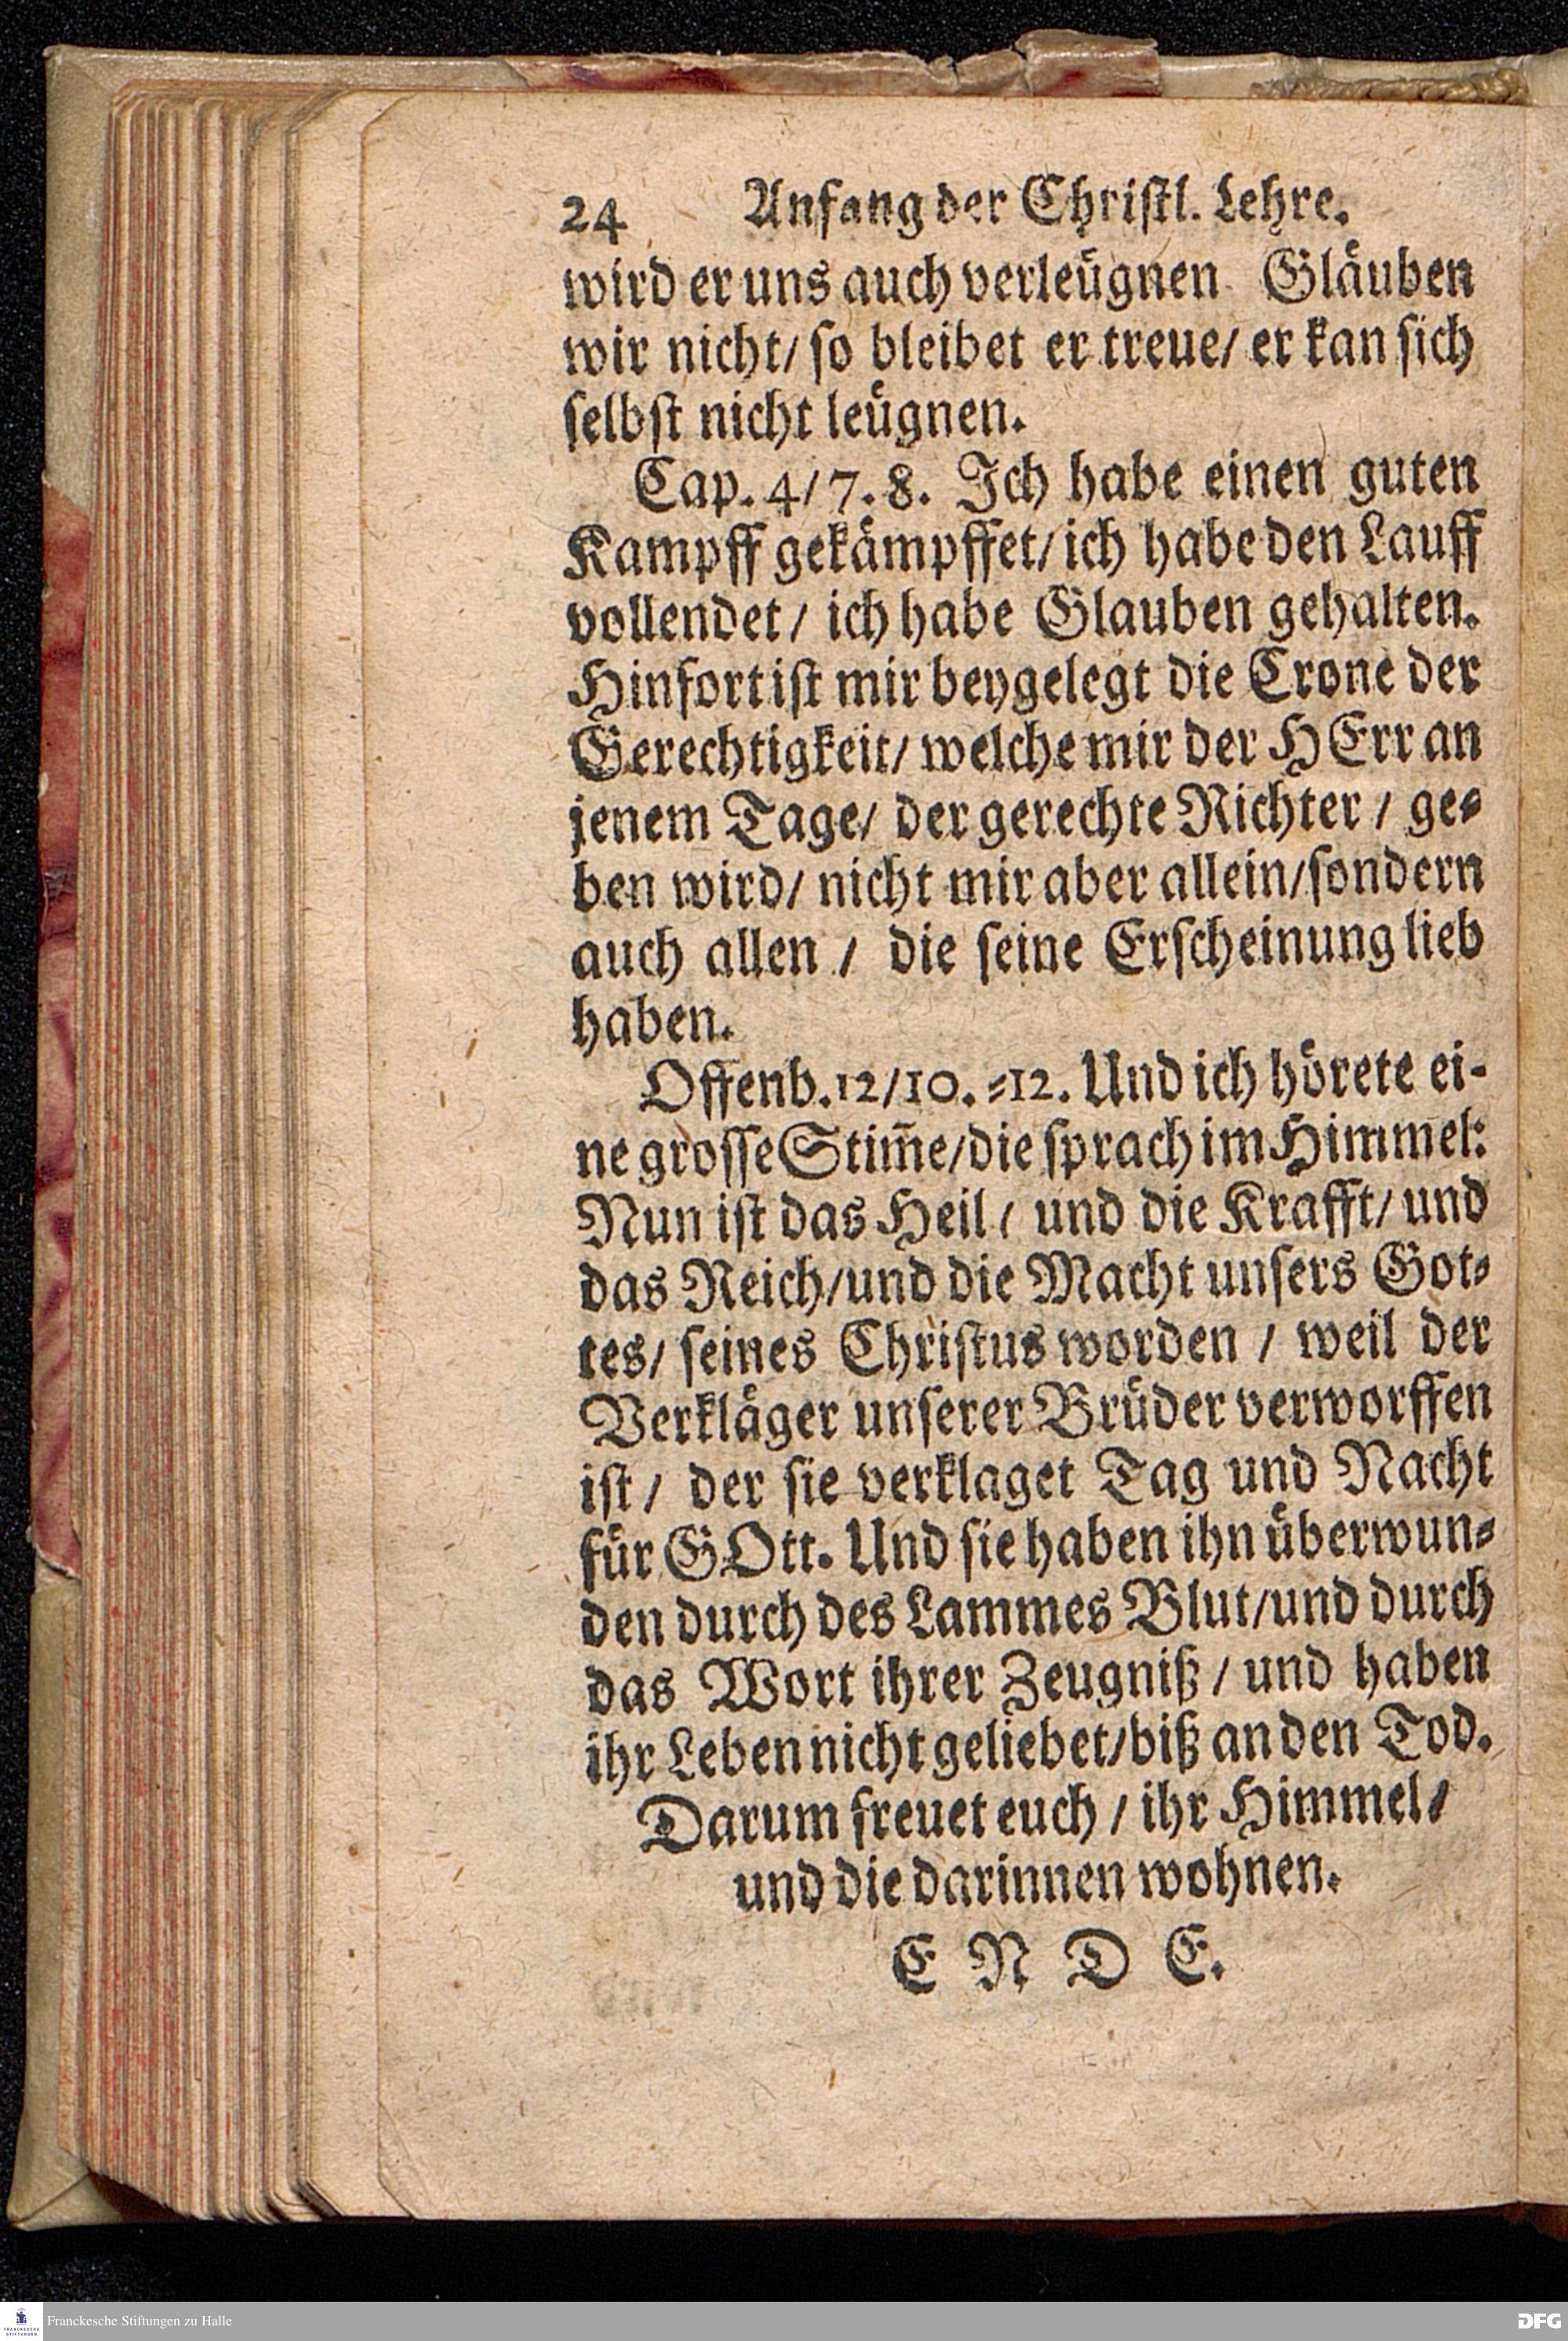 24 Anfang der Christl. Lehre.
wird er uns auch verleügnen Gläuben
wir nicht/ so bleibet er treue/ er kan sich
selbst nicht leügnen.
Cap. 4/7.8. Ich habe einen guten
Kampff gekämpffet/ ich habe den Lauff
vollendet/ ich habe Glauben gehalten.
Hinfort ist mir beygelegt die Crone der
Gerechtigkeit/ welche mir der HErr an
jenem Tage/ der gerechte Richter / ge-
ben wird/ nicht mir aber allein/sondern
auch allen / die seine Erscheinung lieb
haben.
Offenb.12/10.-12. Und ich hörete ei-
ne grosse Stim̃e/die sprach im Himmel:
Nun ist das Heil / und die Krafft/ und
das Reich/und die Macht unsers Got-
tes/ seines Christus worden / weil der
Verkläger unserer Brüder verworffen
ist / der sie verklaget Tag und Nacht
für GOtt. Und sie haben ihn überwun-
den durch des Lammes Blut/und durch
das Wort ihrer Zeugniß / und haben
ihr Leben nicht geliebet/biß an den Tod.
Darum freuet euch / ihr Himmel/
und die darinnen wohnen.
E N D E.
Franckesche Stiftungen zu Halle
DFG